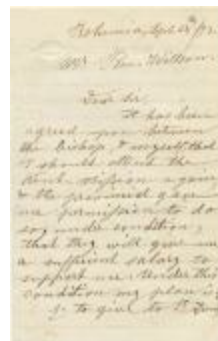 Bohemia, Sept 25th /72.
Mr. Thos. Willson.
Dear Sir,
It has been
agreed upon between
the Bishop & myself that
I should attend the
mission again
& the provincial gave
me permission to do
so, under condition,
that they will give me
a sufficient salary to
support me. Under this
condition my plan is
to give to